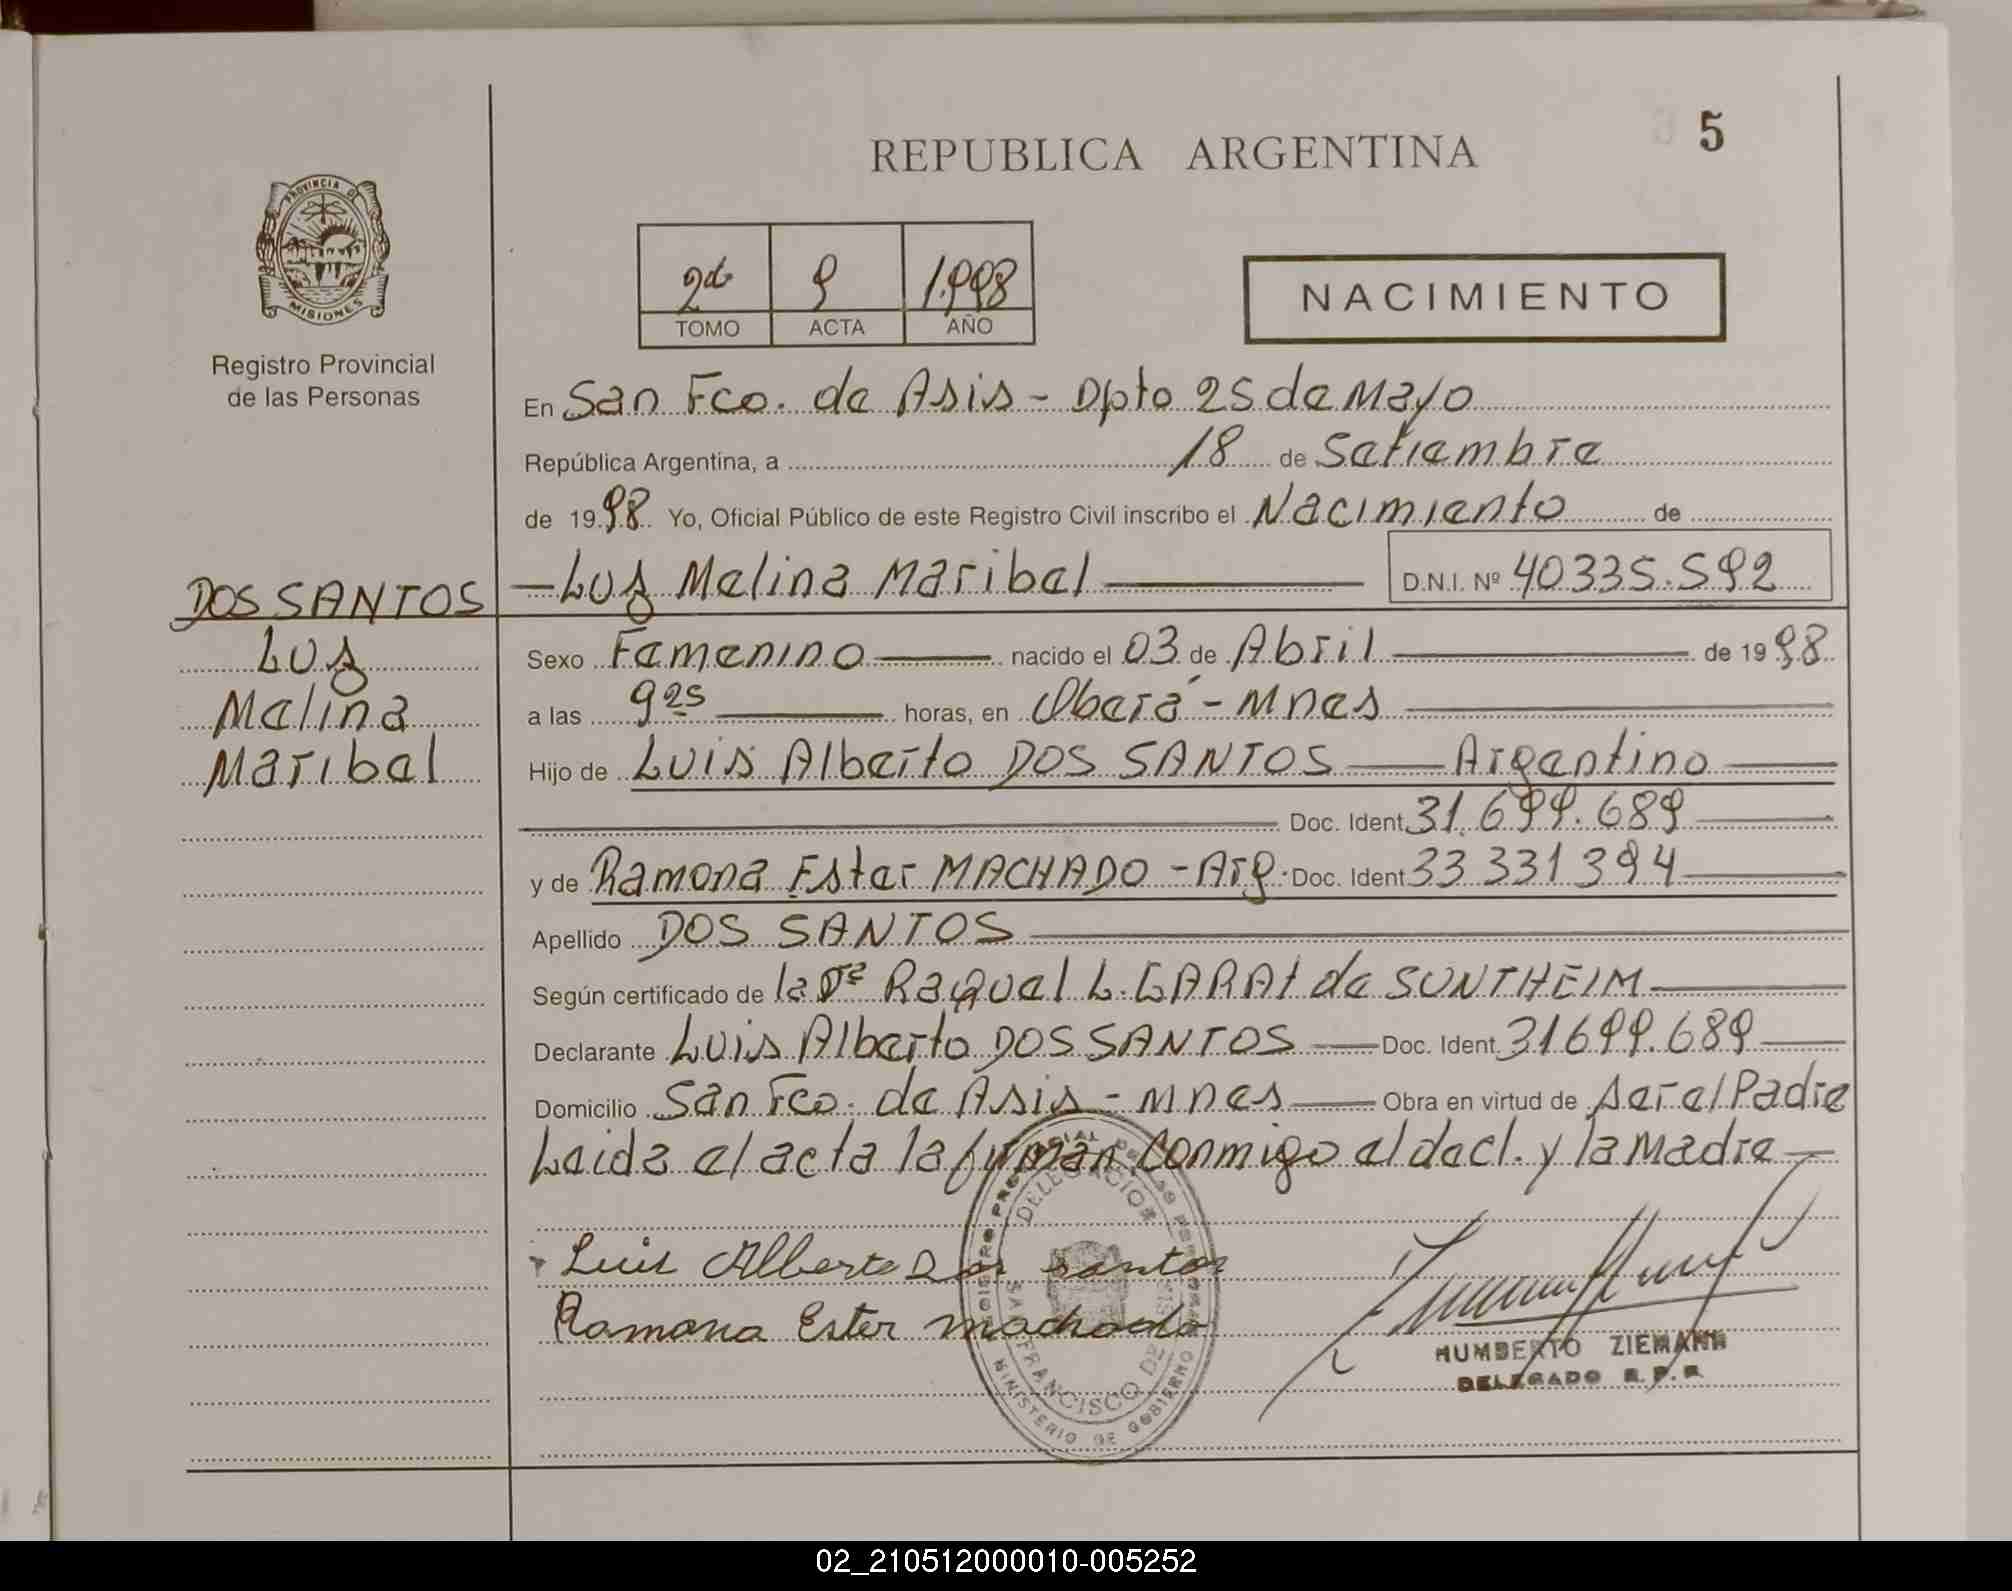 REPUBLICA ARGENTINA
5
PROVINCIA DE
MISIONES
Registro Provincial
de las Personas
2do 9 1.998
TOMO ACTA AÑO
NACIMIENTO
En San Fco. de Asis - Dpto 25 de Mayo
República Argentina, a 18 de Setiembre
de 1998 Yo, Oficial Público de este Registro Civil inscribo el Nacimiento de
DOS SANTOS
Luz
Melina
Maribel
Luz Melina Maribel D.N.I. Nº 40335.592
Sexo Femenino nacido el 03 de Abril de 1998
a las 9 25 horas, en Oberá - Mnes
Hijo de Luis Alberto DOS SANTOS Argentino
Doc. Ident 31.699.689
y de Ramona Ester MACHADO - Arg. Doc. Ident 33 331 394
Apellido DOS SANTOS
Según certificado de la Dra Raquel L. GARAY de SUNTHEIM
Declarante Luis Alberto DOS SANTOS Doc. Ident. 31699.689
Domicilio San Fco. de Asis - Mnes Obra en virtud de ser el Padre
Leida el acta la firman conmigo el decl. y la Madre
Luis Alberto Dos santos
Ramona Ester machado
HUMBERTO ZIEMANN
DELEGADO R.P.P.
REGISTRO PROVINCIAL DE LAS PERSONAS
MINISTERIO DE GOBIERNO
SAN FRANCISCO DE
02_210512000010-005252